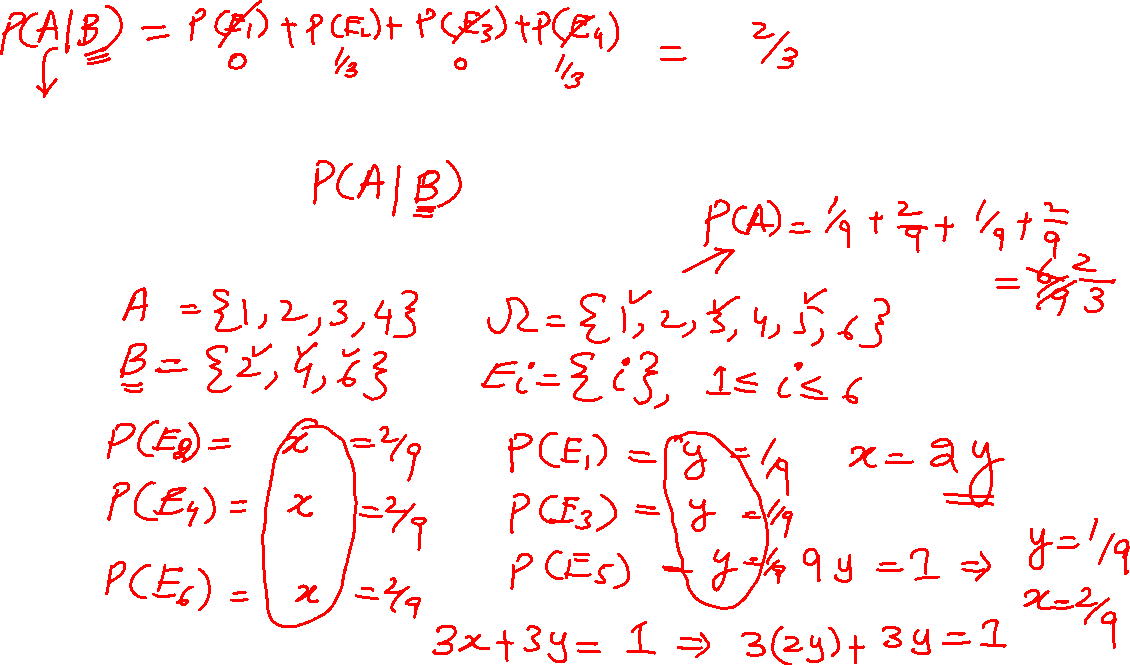 P(A|B) = P(E1) + P(E2) + P(E3) + P(E4) = 2/3
0 1/3 0 1/3
P(A|B)
P(A) = 1/9 + 2/9 + 1/9 + 2/9
= 6/9 2/3
A = {1, 2, 3, 4} Ω = {1, 2, 3, 4, 5, 6}
B = {2, 4, 6} Ei = {i}, 1 ≤ i ≤ 6
P(E2) = x = 2/9 P(E1) = y = 1/9 x = 2y
P(E4) = x = 2/9 P(E3) = y = 1/9
P(E6) = x = 2/9 P(E5) - y = 1/9 9y = 1 ⇒ y = 1/9
x = 2/9
3x + 3y = 1 ⇒ 3(2y) + 3y = 1